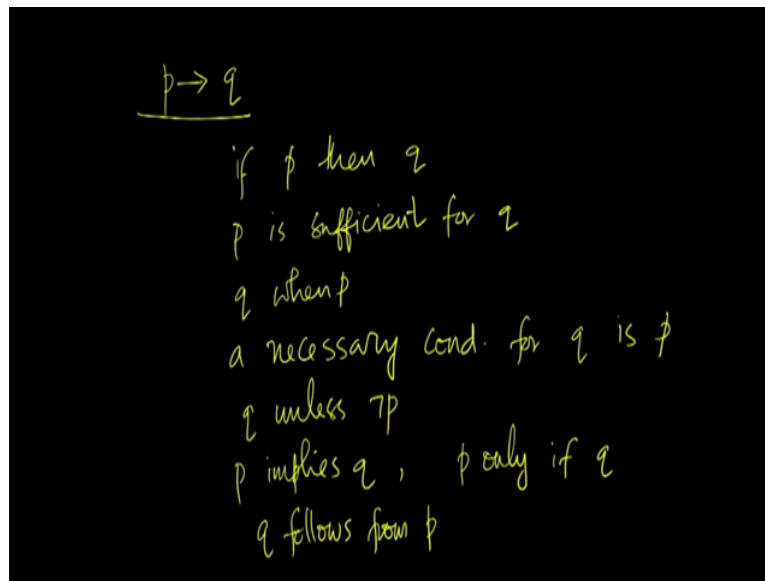 p → q
if p then q
p is sufficient for q
q when p
a necessary cond. for q is p
q unless ¬p
p implies q, p only if q
q follows from p